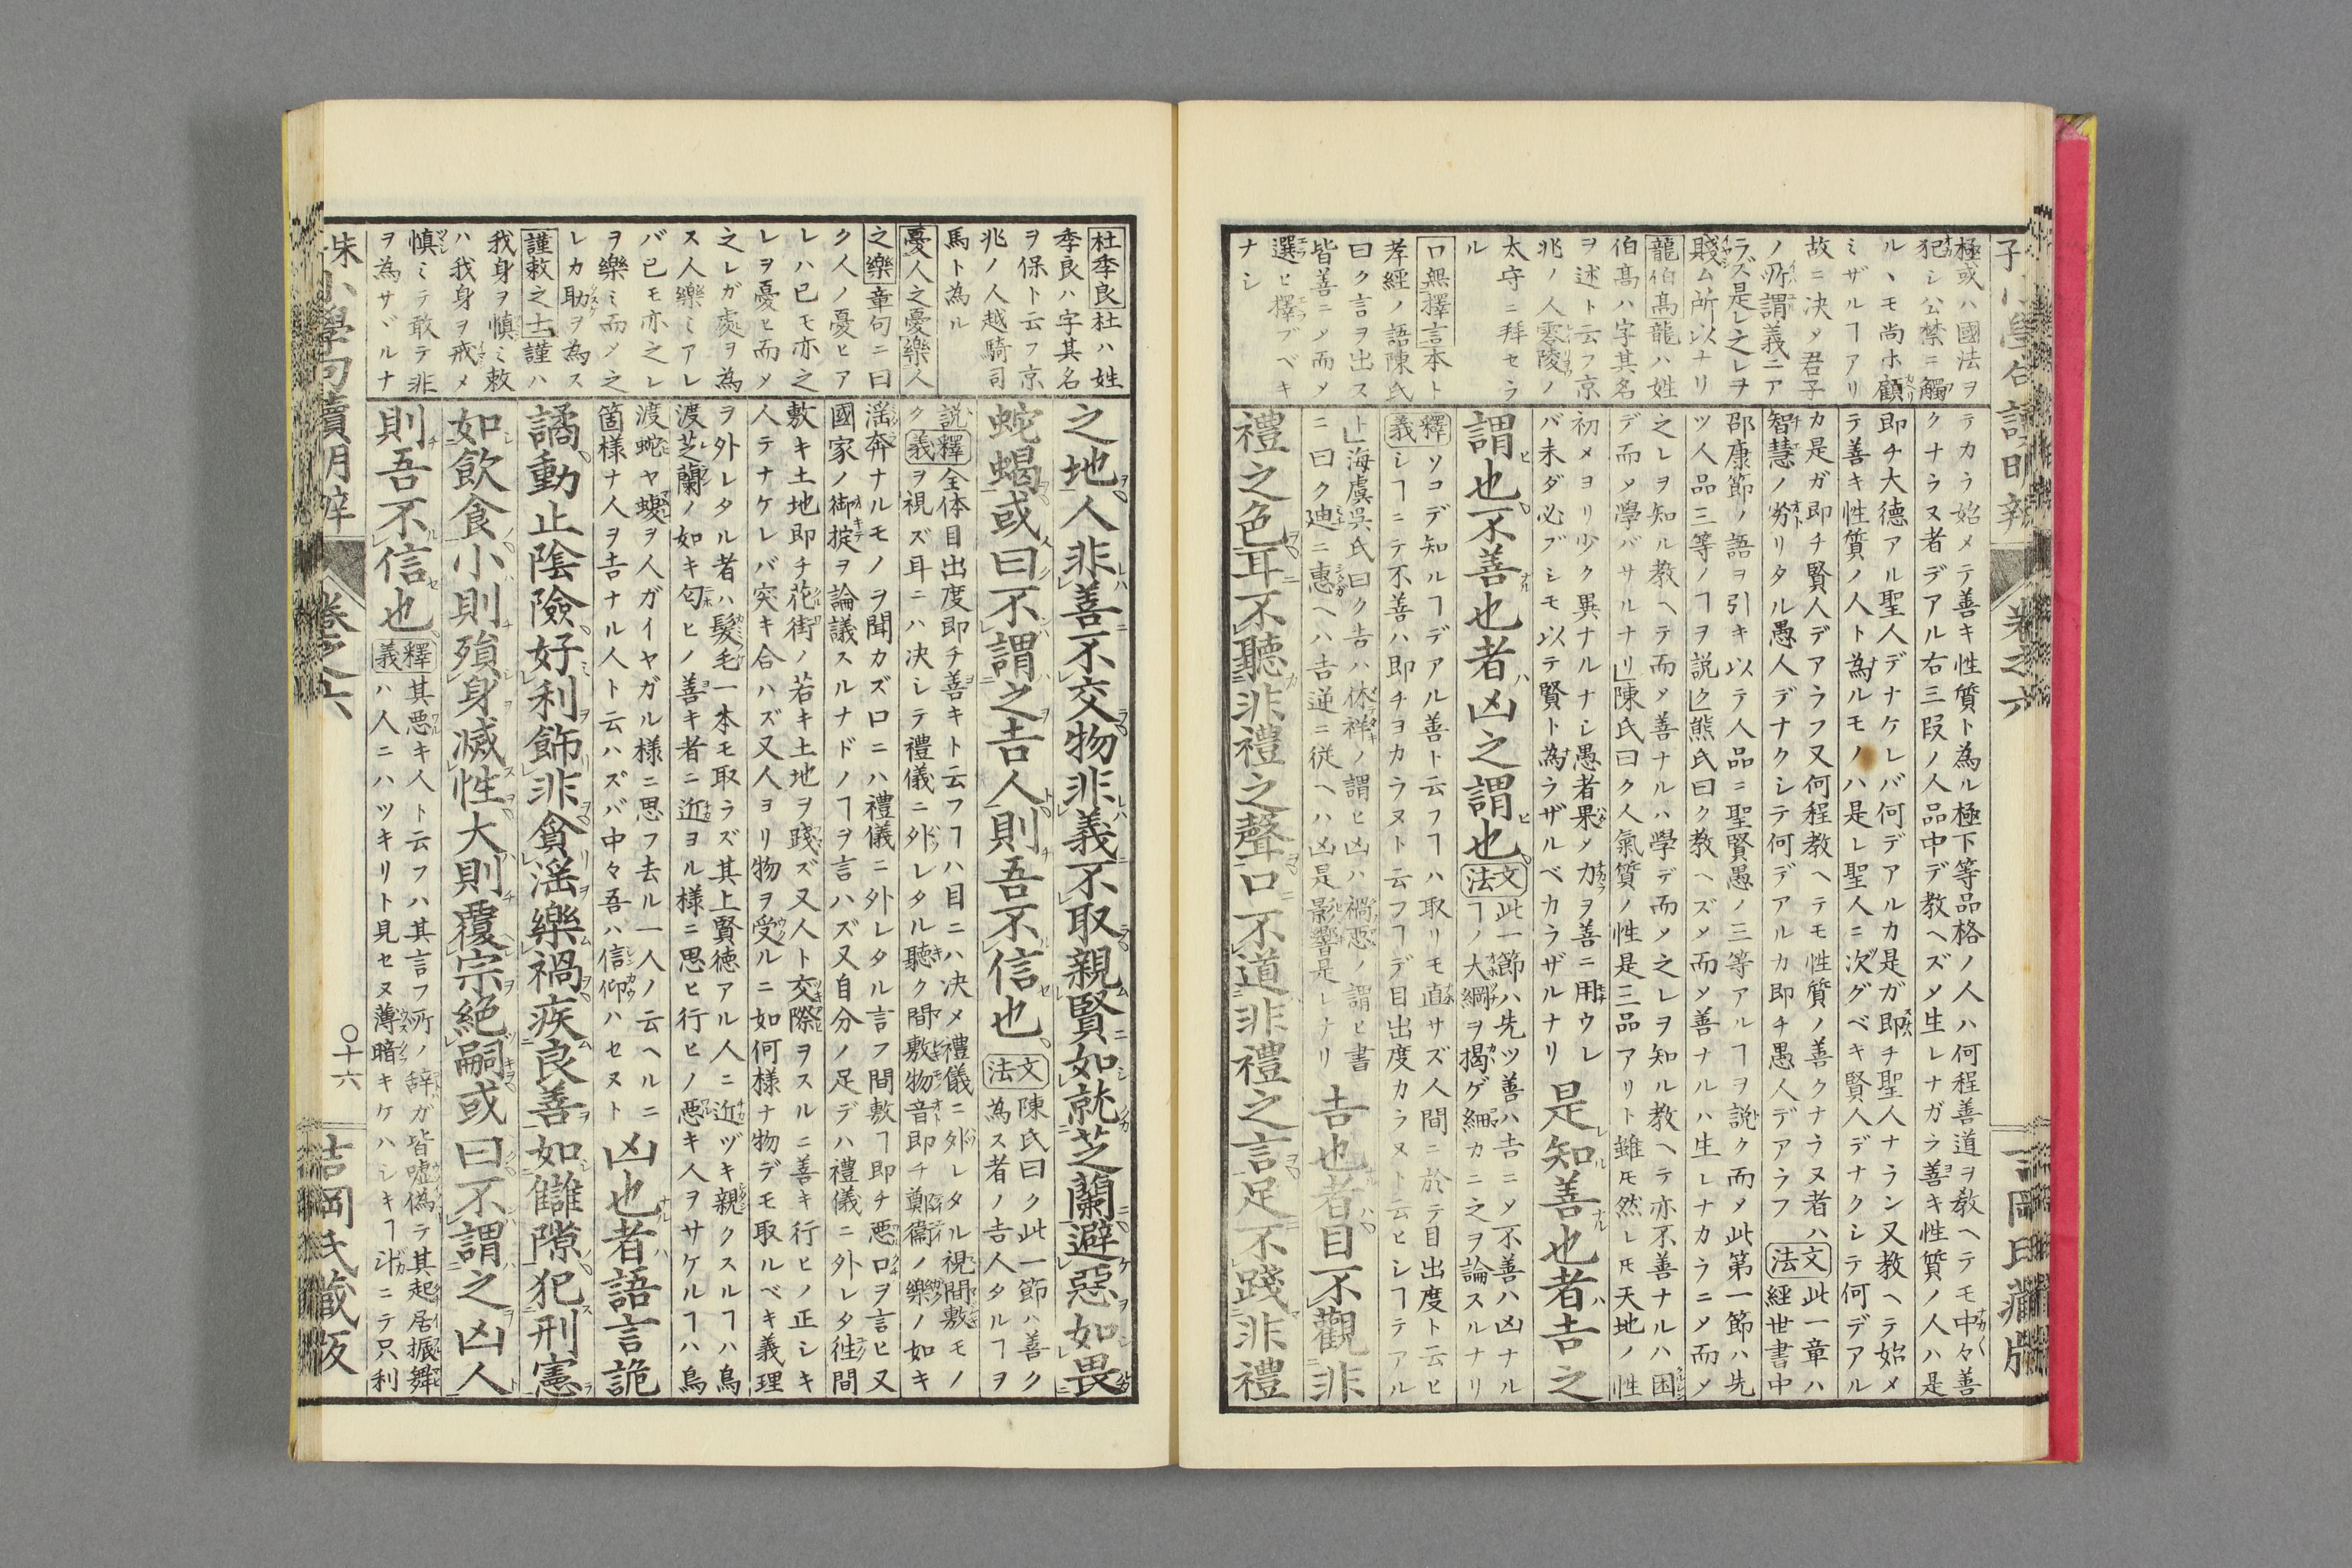 極或ハ國法ヲ
犯シ公禁ニ觸
ルヽモ尚ホ顧
ミザルヿアリ
故ニ决メ君子
ノ所謂義ニア
ラズ是レ之レヲ
賤ム所以ナリ
龍伯髙龍ハ姓
伯髙ハ字其名
ヲ述ト云フ京
兆ノ人零陵ノ
太守ニ拜セラ
ル
口無擇言本ト
孝經ノ語陳氏
曰ク言ヲ出ス
皆善ニメ而メ
選ヒ擇ブベキ
ナシ
テカラ始メテ善キ性質ト為ル極下等品格ノ人ハ何程善道ヲ敎ヘテモ中々善
クナラヌ者デアル右三叚ノ人品中デ教ヘズメ生レナガラ善キ性質ノ人ハ是
即チ大德アル聖人デナケレバ何デアルカ是ガ即チ聖人ナラン又教ヘテ始メ
テ善キ性質ノ人ト為ルモノハ是レ聖人ニ次グベキ賢人デナクシテ何デアル
カ是ガ即チ賢人デアラフ又何程教ヘテモ性質ノ善クナラヌ者ハ
智慧ノ劣リタル愚人デナクシテ何デアルカ即チ愚人デアラフ
文法
此一章ハ
經世書中
邵康節ノ語ヲ引キ以テ人品ニ聖賢愚ノ三等アルヿヲ説ク而メ此第一節ハ先
ツ人品三等ノヿヲ説ク」熊氏曰ク教ヘズメ而メ善ナルハ生レナカラニメ而メ
之レヲ知ル教ヘテ而メ善ナルハ學デ而メ之レヲ知ル教ヘテ亦不善ナルハ困
デ而メ學バサルナリ」陳氏曰ク人氣質ノ性是三品アリト雖𪜈然レ𪜈天地ノ性
初メヨリ少ク異ナルナシ愚者果メ力ヲ善ニ用ウレ
バ未ダ必ブシモ以テ賢ト為ラザルベカラザルナリ
是知善也者吉之
謂也不善也者凶之謂也
文法
此一節ハ先ツ善ハ吉ニメ不善ハ凶ナル
ヿノ大綱ヲ掲ゲ細カニ之ヲ論スルナリ
釋義
ソコデ知ルヿデアル善ト云フヿハ取リモ直サズ人間ニ於テ目出度ト云ヒ
シヿニテ不善ハ即チヨカラヌト云フヿデ目出度カラヌト云ヒシヿテアル
ト」海虞呉氏曰ク吉ハ休祥ノ謂ヒ凶ハ禍惡ノ謂ヒ書
ニ曰ク迪ニ惠ヘハ吉逆ニ従ヘハ凶是影響是レナリ
吉也者目不觀非
禮之色耳不聽非禮之聲口不道非禮之言足不踐非禮
杜季良杜ハ姓
季良ハ字其名
ヲ保ト云フ京
兆ノ人越騎司
馬ト為ル
憂人之憂樂人
之樂章句ニ曰
ク人ノ憂ヒア
レハ已モ亦之
レヲ憂ヒ而メ
之レガ處ヲ為
ス人樂ミアレ
バ已モ亦之レ
ヲ樂ミ而メ之
レカ助ヲ為ス
謹敕之士謹ハ
我身ヲ慎ミ敕
ハ我身ヲ戒メ
慎ミテ敢テ非
ヲ為サヾルナ
之地人非善不交物非義不取親賢如就芝蘭避惡如畏
蛇蝎或曰不謂之吉人則吾不信也
文法
陳氏曰ク此一節ハ善ク
為ス者ノ吉人タルヿヲ
説ク
釋義
全体目出度即チ善キト云フヿハ目ニハ决メ禮儀ニ外レタル視間敷モノ
ヲ視ズ耳ニハ决シテ禮儀ニ外レタル聽ク間敷物音即チ鄭衞ノ樂ノ如キ
滛奔ナルモノヲ聞カズ口ニハ禮儀ニ外レタル言フ間敷ヿ即チ悪口ヲ言ヒ又
國家ノ御掟ヲ論議スルナドノヿヲ言ハズ又自分ノ足デハ禮儀ニ外レタ徃間
敷キ土地即チ花街ノ若キ土地ヲ踐ズ又人ト交際ヲスルニ善キ行ヒノ正シキ
人テナケレバ突キ合ハズ又人ヨリ物ヲ受ルニ如何様ナ物デモ取ルベキ義理
ヲ外レタル者ハ髪毛一本モ取ラズ其上賢徳アル人ニ近ヅキ親クスルヿハ鳥
渡芝蘭ノ如キ匂ヒノ善キ者ニ近ヨル様ニ思ヒ行ヒノ惡キ人ヲサケルヿハ鳥
渡蛇ヤ蝮ヲ人ガイヤガル様ニ思フ去ル一人ノ云ヘルニ
箇様ナ人ヲ吉ナル人ト云ハズバ中々吾ハ信仰ハセヌト
凶也者語言詭
譎動止陰險好利飾非貪滛樂禍疾良善如讎隙犯刑憲
如飲食小則殞身滅性大則覆宗絶嗣或曰不謂之凶人
則吾不信也
釋義
其悪キ人ト云フハ其言フ所ノ辞ガ皆嘘偽テ其起居振舞
ハ人ニハツキリト見セヌ薄暗キケハシキヿ計ニテ只利
卷之六
〇十六
吉岡氏藏版